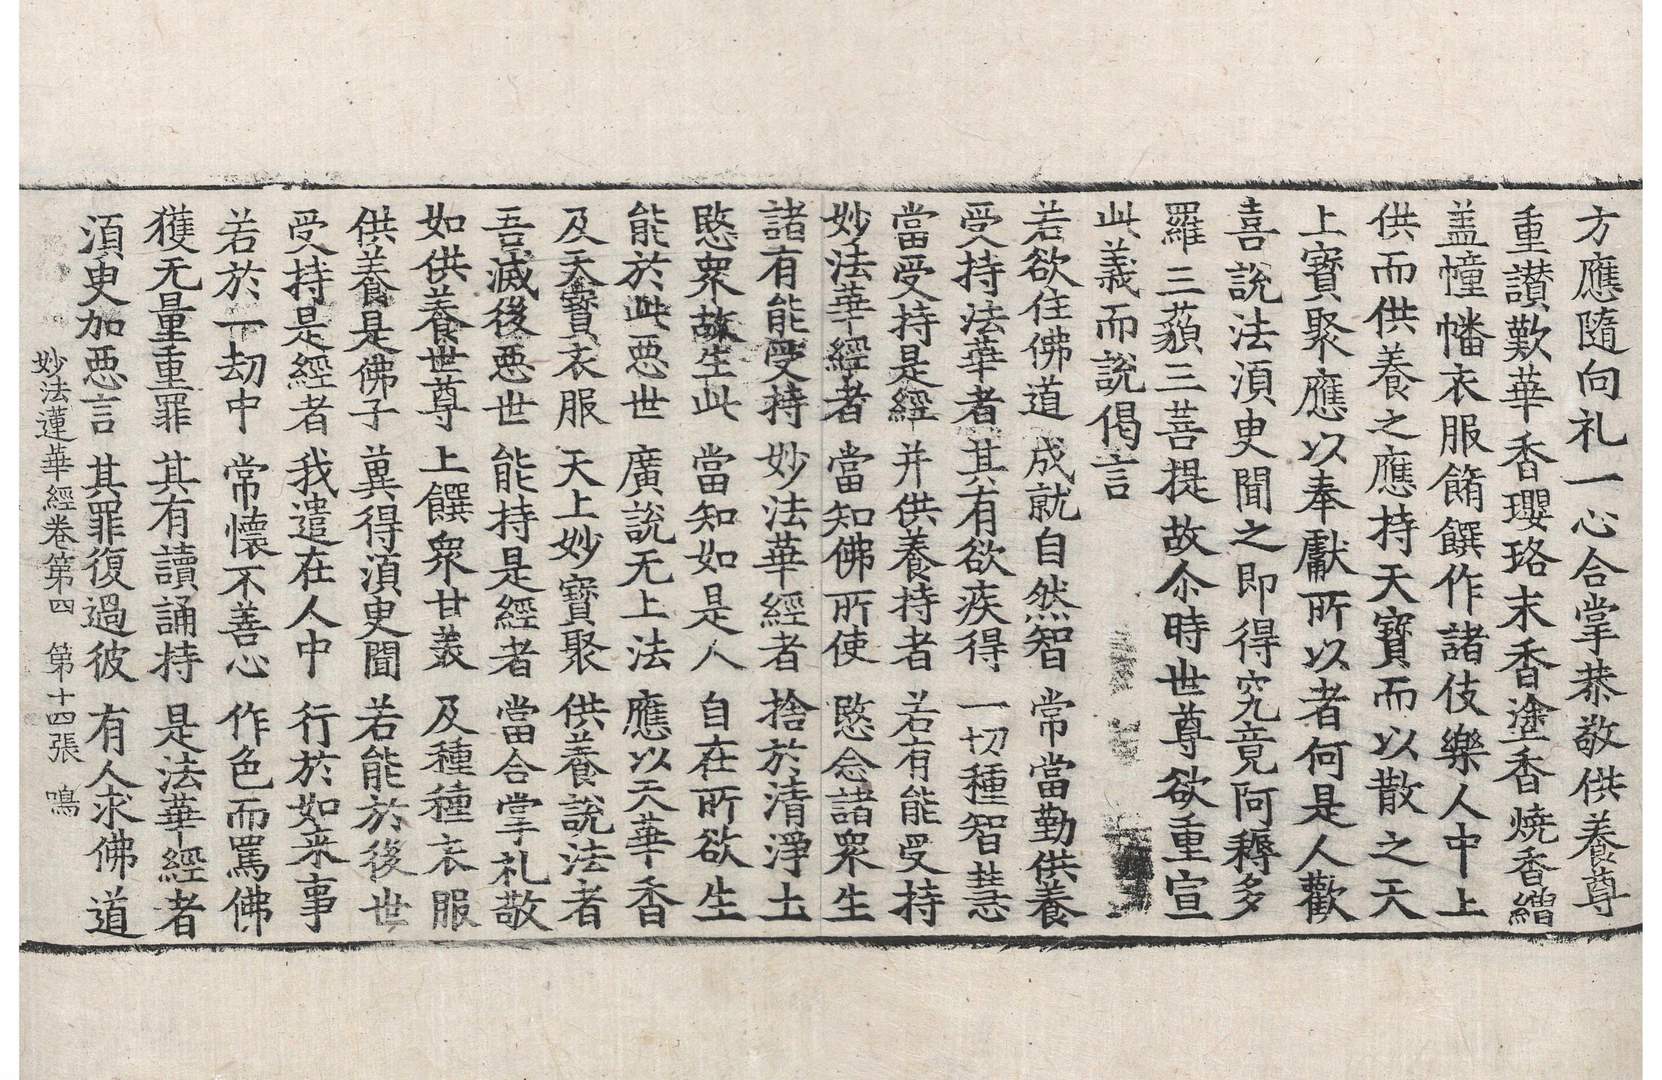 方應隨向礼一心合掌恭敬供養尊
重讃歎華香瓔珞末香塗香燒香繒
盖幢幡衣服餚饌作諸伎樂人中上
供而供養之應持天寶而以散之天
上寶聚應以奉獻所以者何是人歡
喜說法湏㬰聞之即得究竟阿耨多
羅三藐三菩提故尒時世尊欲重宣
此義而說偈言
若欲住佛道 成就自然智 常當勤供養
受持法華者 其有欲疾得 一切種智慧
當受持是經 并供養持者 若有能受持
妙法華經者 當知佛所使 愍念諸衆生
諸有能受持 妙法華經者 捨於清淨土
愍衆故生此 當知如是人 自在所欲生
能於此惡世 廣說无上法 應以天華香
及天寶衣服 天上妙寶聚 供養說法者
吾滅後惡世 能持是經者 當合掌礼敬
如供養世尊 上饌衆甘羙 及種種衣服
供養是佛子 兾得湏㬰聞 若能於後世
受持是經者 我遣在人中 行於如来事
若於一劫中 常懷不善心 作色而罵佛
獲无量重罪 其有讀誦持 是法華經者
湏㬰加惡言 其罪復過彼 有人求佛道
妙法蓮華經卷第四 第十四張 鳴